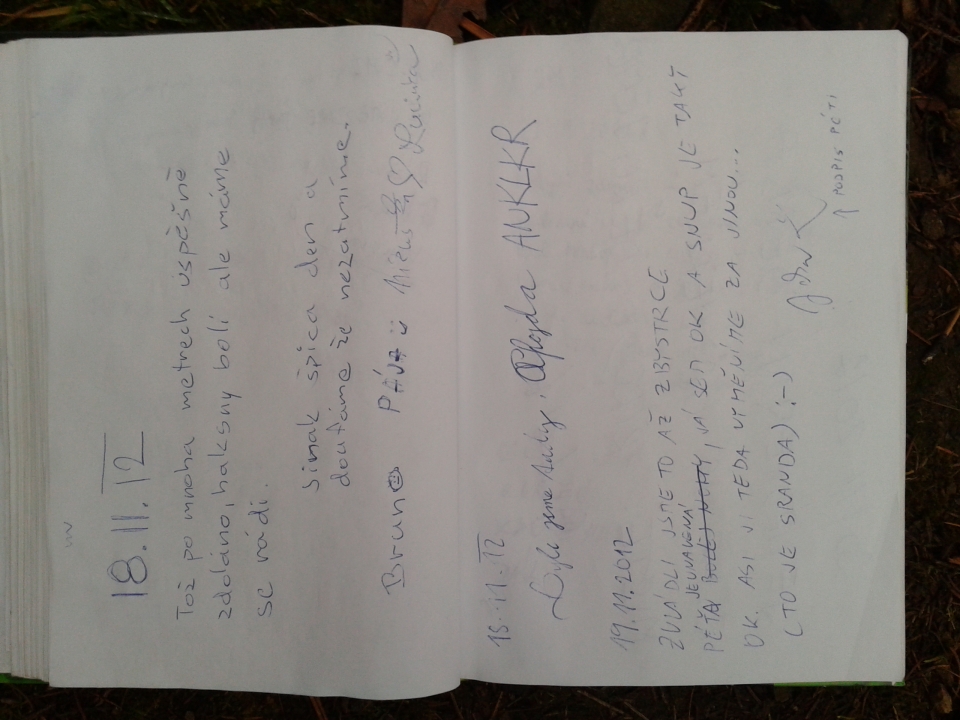 18.11.12
Tož po mnoha metrech úspěšně
zdoláno, haksny bolí ale máme
se rádi.
Sinak špica den a
doufáme že nezatmíme.
Bruno
18.11.12
Byli jsme tady. ANKLKR
19.11.2012
ZVLÁDLI JSME TO AŽ Z BYSTRCE
JE UNAVENÁ
PÉŤA, JÁ SEM OK A SNUP JE TAKY
OK. ASI JI TEDA VYMĚNÍME ZA JINOU...
(TO JE SRANDA) :-)
↑ PODPIS PÉTI